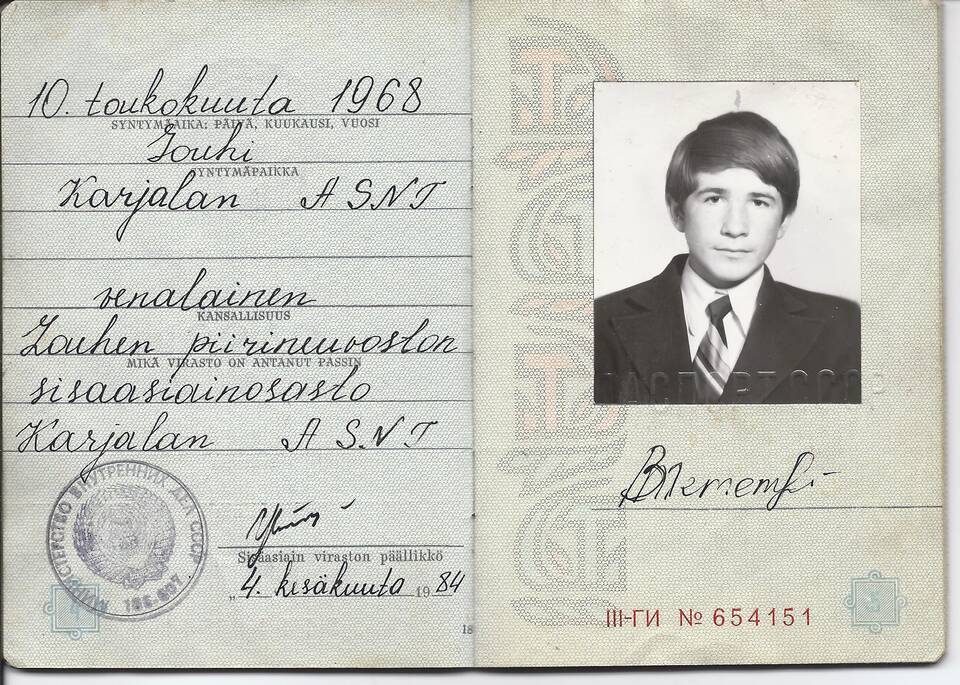 10. toukokuuta 1968
SYNTYMÄAIKA: PÄIVÄ, KUUKAUSI, VUOSI
Louhi
SYNTYMÄPAIKKA
Karjalan ASNT
venalainen
KANSALLISUUS
Louhen piirineuvoston
MIKÄ VIRASTO ON ANTANUT PASSIN
sisaasiainosasto
Karjalan ASNT
МИНИСТЕРСТВО ВНУТРЕННИХ ДЕЛ СССР
Sisäasiain viraston päällikkö
„4. kesäkuuta 1984
18
ПАСПОРТ СССР
III-ГИ № 654151